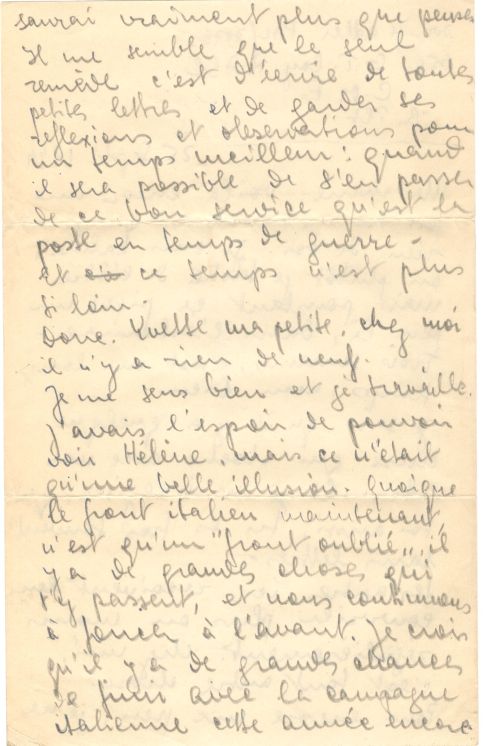 saurai vraiment plus que penser
Il me semble que le seul
remède c'est d'écrire de toutes
petites lettres et de garder ses
réflexions et observations pour
un temps meilleur : quand
il sera possible de s'en passer
de ce bon service qu'est la
poste en temps de guerre -
et ce temps n'est plus
si loin.
Donc. Yvette ma petite. chez moi
il n'y a rien de neuf.
Je me sens bien et je travaille.
J'avais l'espoir de pouvoir
voir Hélène. mais ce n'était
qu'une belle illusion. Quoique
le front italien maintenant
n'est qu'un "front oublié", il
y a de grandes choses qui
s'y passent, et nous continuons
à foncer à l'avant. Je crois
qu'il y a de grandes chances
de finir avec la campagne
italienne cette année encore